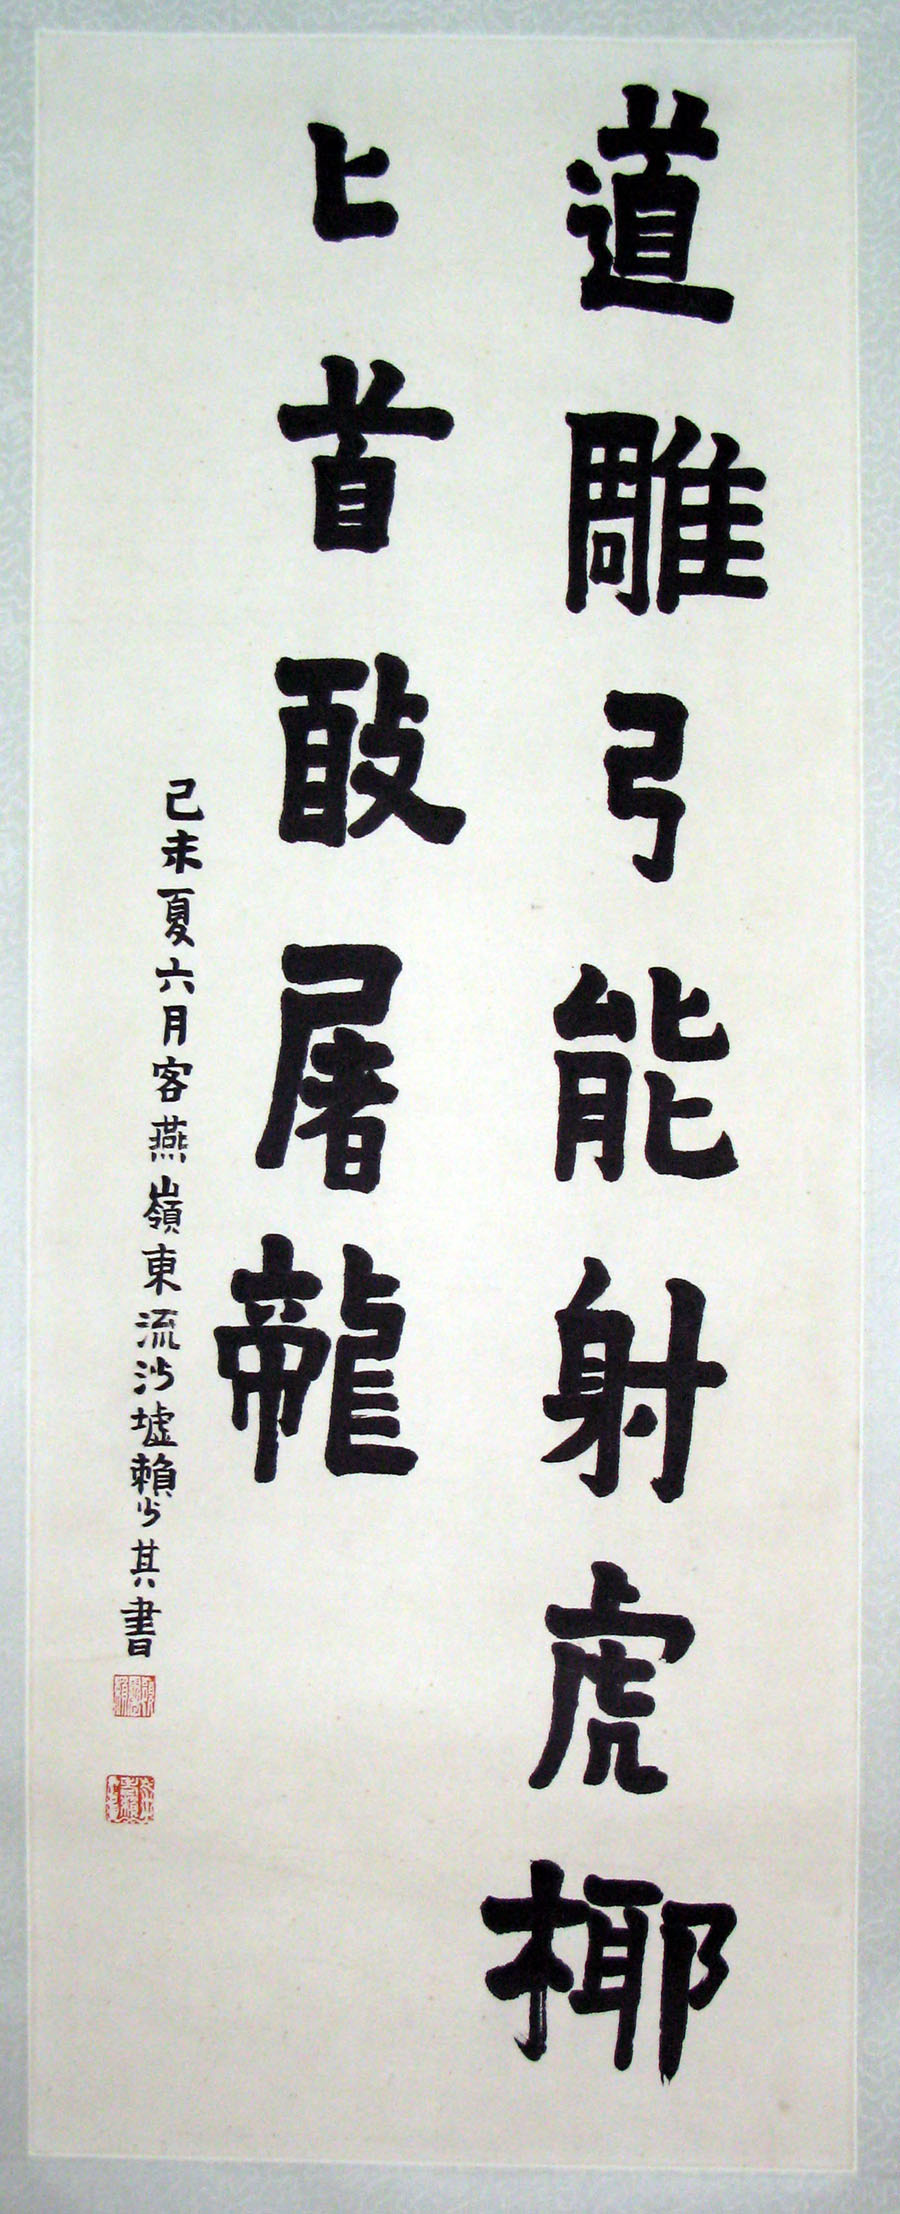 道雕弓能射虎椰
匕首敢屠龍
己未夏六月客燕嶺東流沙墟賴少其書